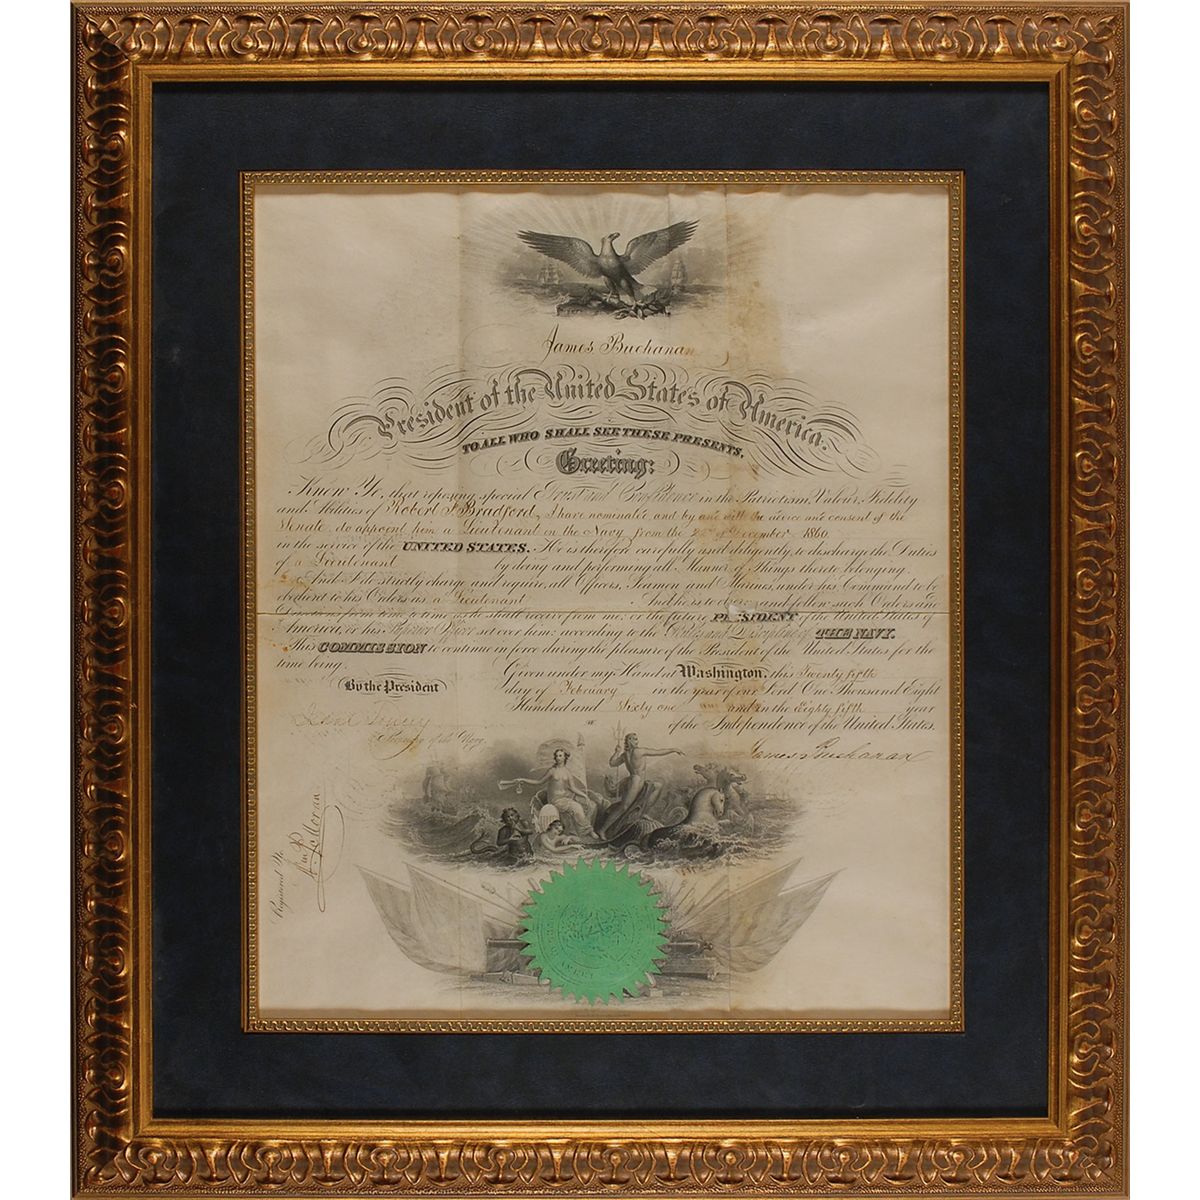 James Buchanan
President of the United States of America.
TO ALL WHO SHALL SEE THESE PRESENTS,
Greeting:
Know Ye, that reposing special Trust and Confidence in the Patriotism, Valour, Fidelity
and Abilities of Robert F. Bradford, I have nominated and by and with the advice and consent of the
Senate do appoint him a Lieutenant in the Navy from the of December 1860
in the service of the UNITED STATES. He is therefore carefully and diligently to discharge the Duties
of a Lieutenant by doing and performing all Manner of Things thereto belonging.
And I do strictly charge and require all Officers, Seamen and Marines under his Command to be
obedient to his Orders as a Lieutenant And he is to observe and follow such Orders and
Directions from time to time as he shall receive from me, or the future PRESIDENT of the United States of
America, or his Superior Officer set over him, according to the Rules and Discipline of THE NAVY.
This COMMISSION to continue in force during the pleasure of the President of the United States for the
time being.
Given under my Hand at Washington, this Twenty fifth
By the President
day of February in the year of our Lord One Thousand Eight
Hundred and Sixty one and in the Eighty fifth year
of the Independence of the United States.
Isaac Toucey
Secretary of the Navy
James Buchanan
Registered No